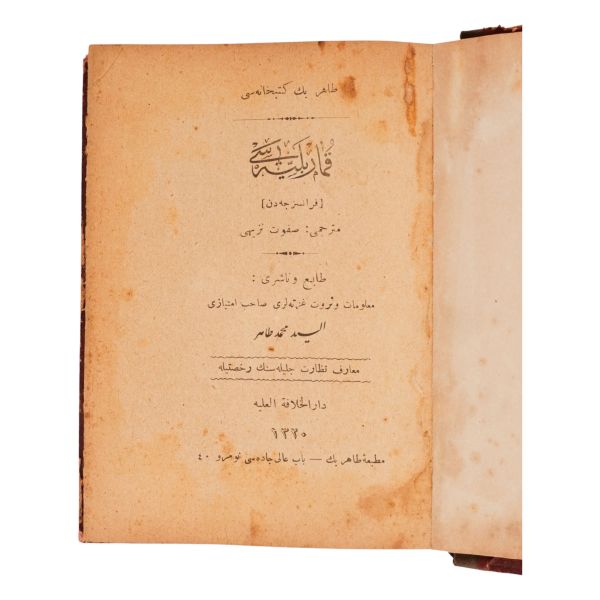 طاهر بك كتبخانه‌سی
قمار بليه‌سی
[فرانسزجه‌دن]
مترجمی: صفوت نزیهی
طابع و ناشری :
معلومات و ثروت غزته‌لری صاحب امتیازی
السید محمد طاهر
معارف نظارت جلیله‌سنك رخصتیله
دارالخلافة العلیه
۱۳۲۰
مطبعهٔ طاهر بك — باب عالی جاده‌سی نومرو ٤٠